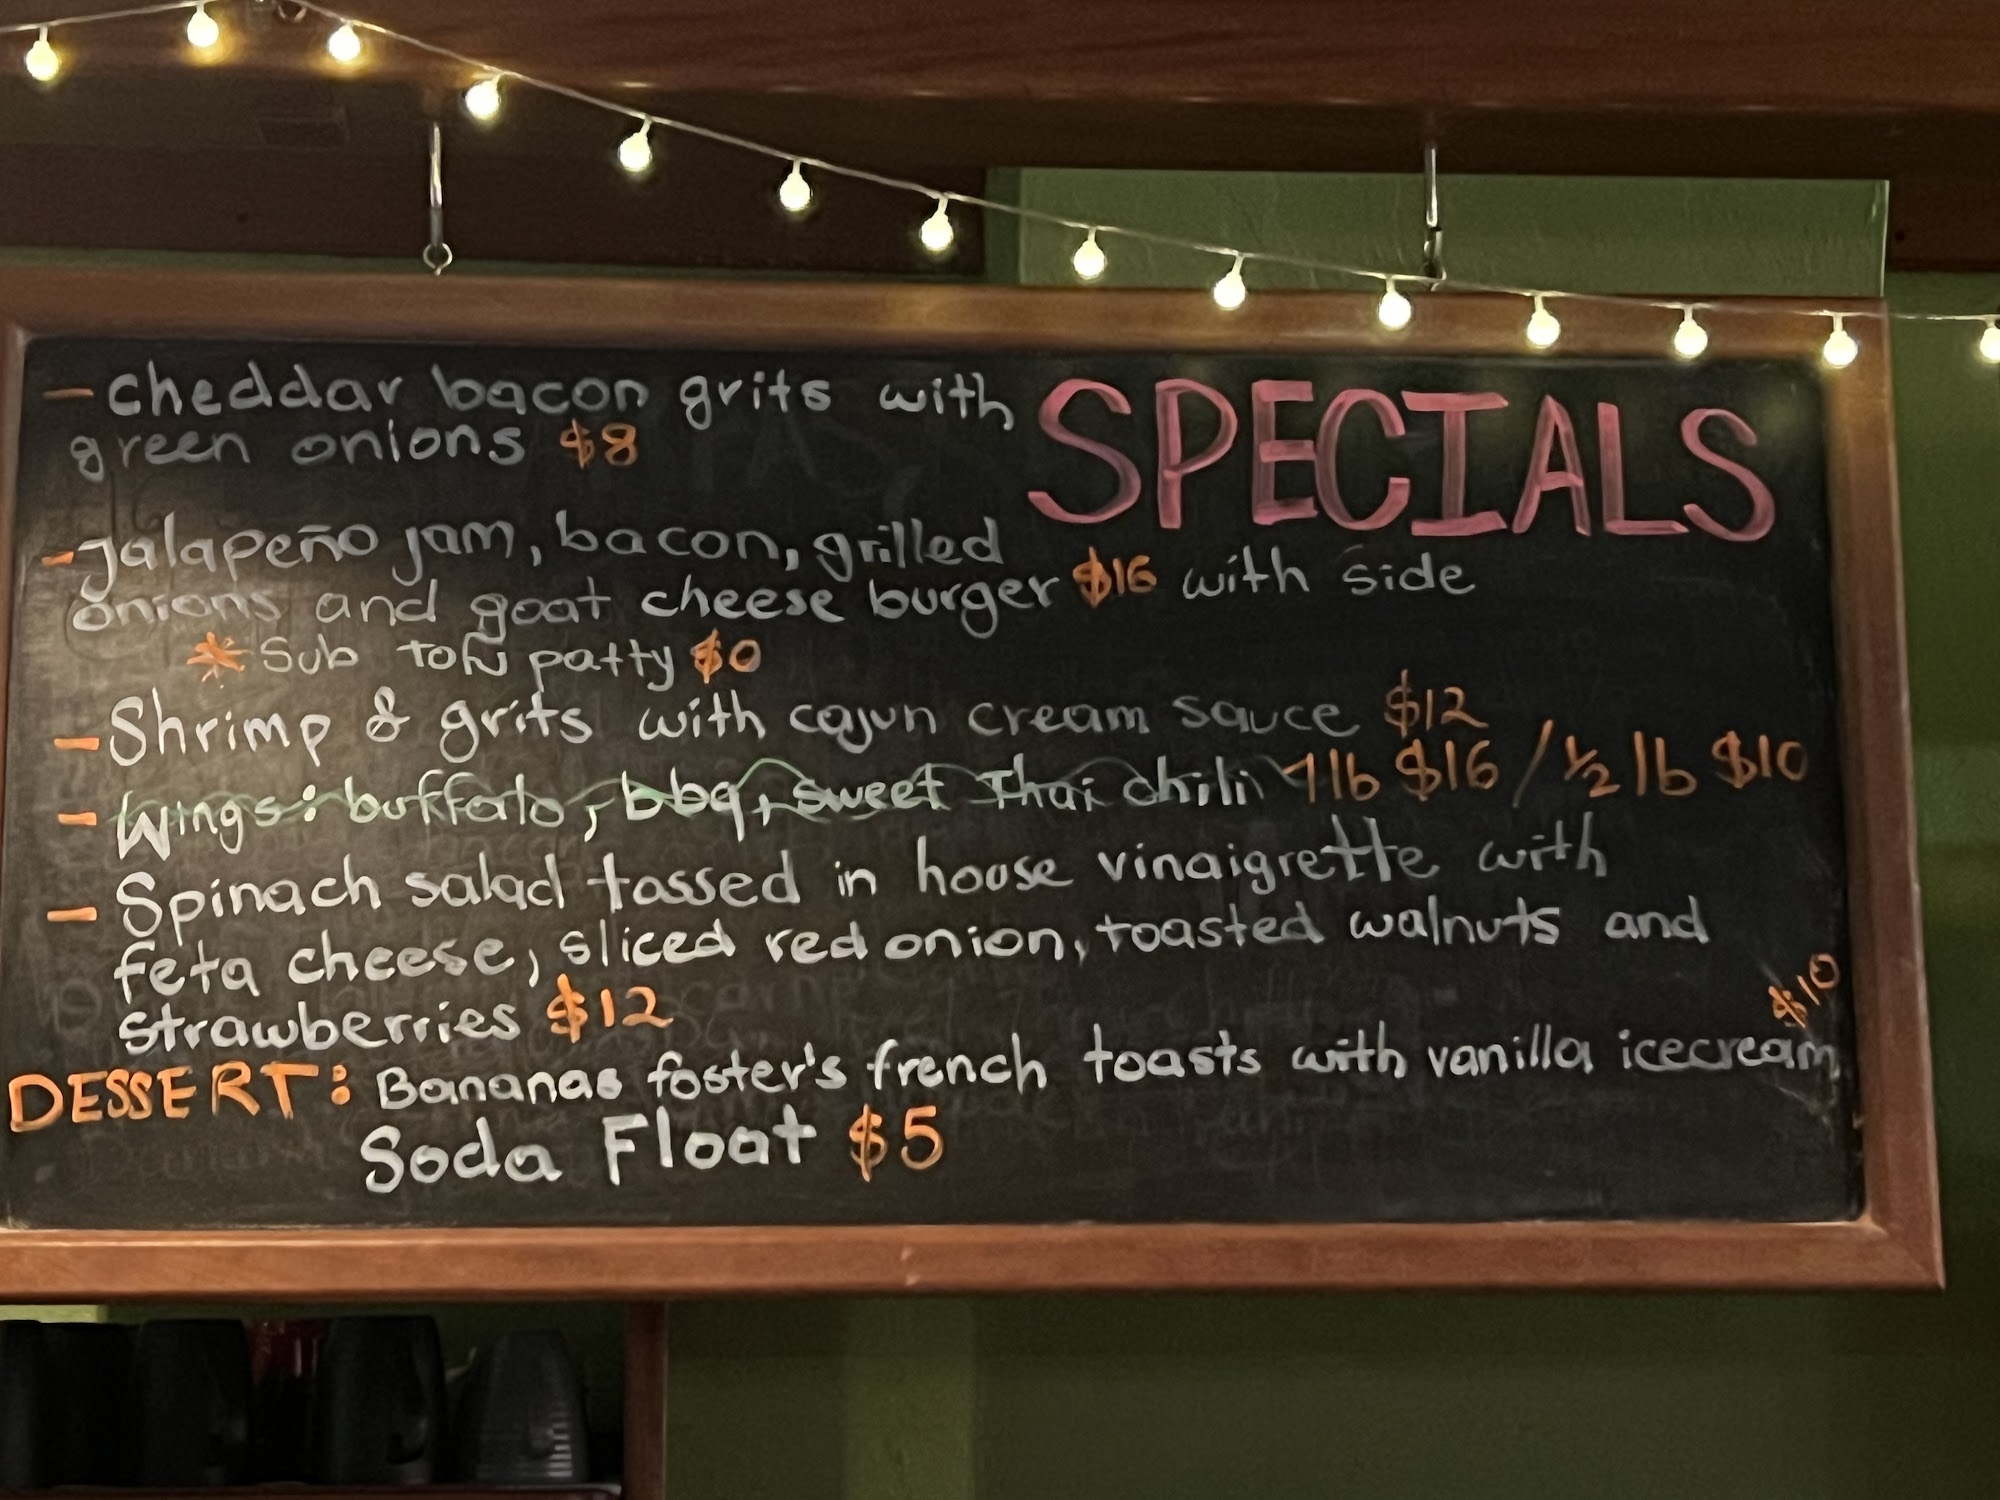 SPECIALS
- cheddar bacon grits with
green onions $8
- Jalapeño jam, bacon, grilled
onions and goat cheese burger $16 with side
* Sub tofu patty $0
- Shrimp & grits with cajun cream sauce $12
- Wings: buffalo, bbq, sweet Thai chili 1 lb $16 / 1/2 lb $10
- Spinach salad tossed in house vinaigrette with
feta cheese, sliced red onion, toasted walnuts and
strawberries $12
DESSERT: Bananas foster's french toasts with vanilla icecream $10
Soda Float $5